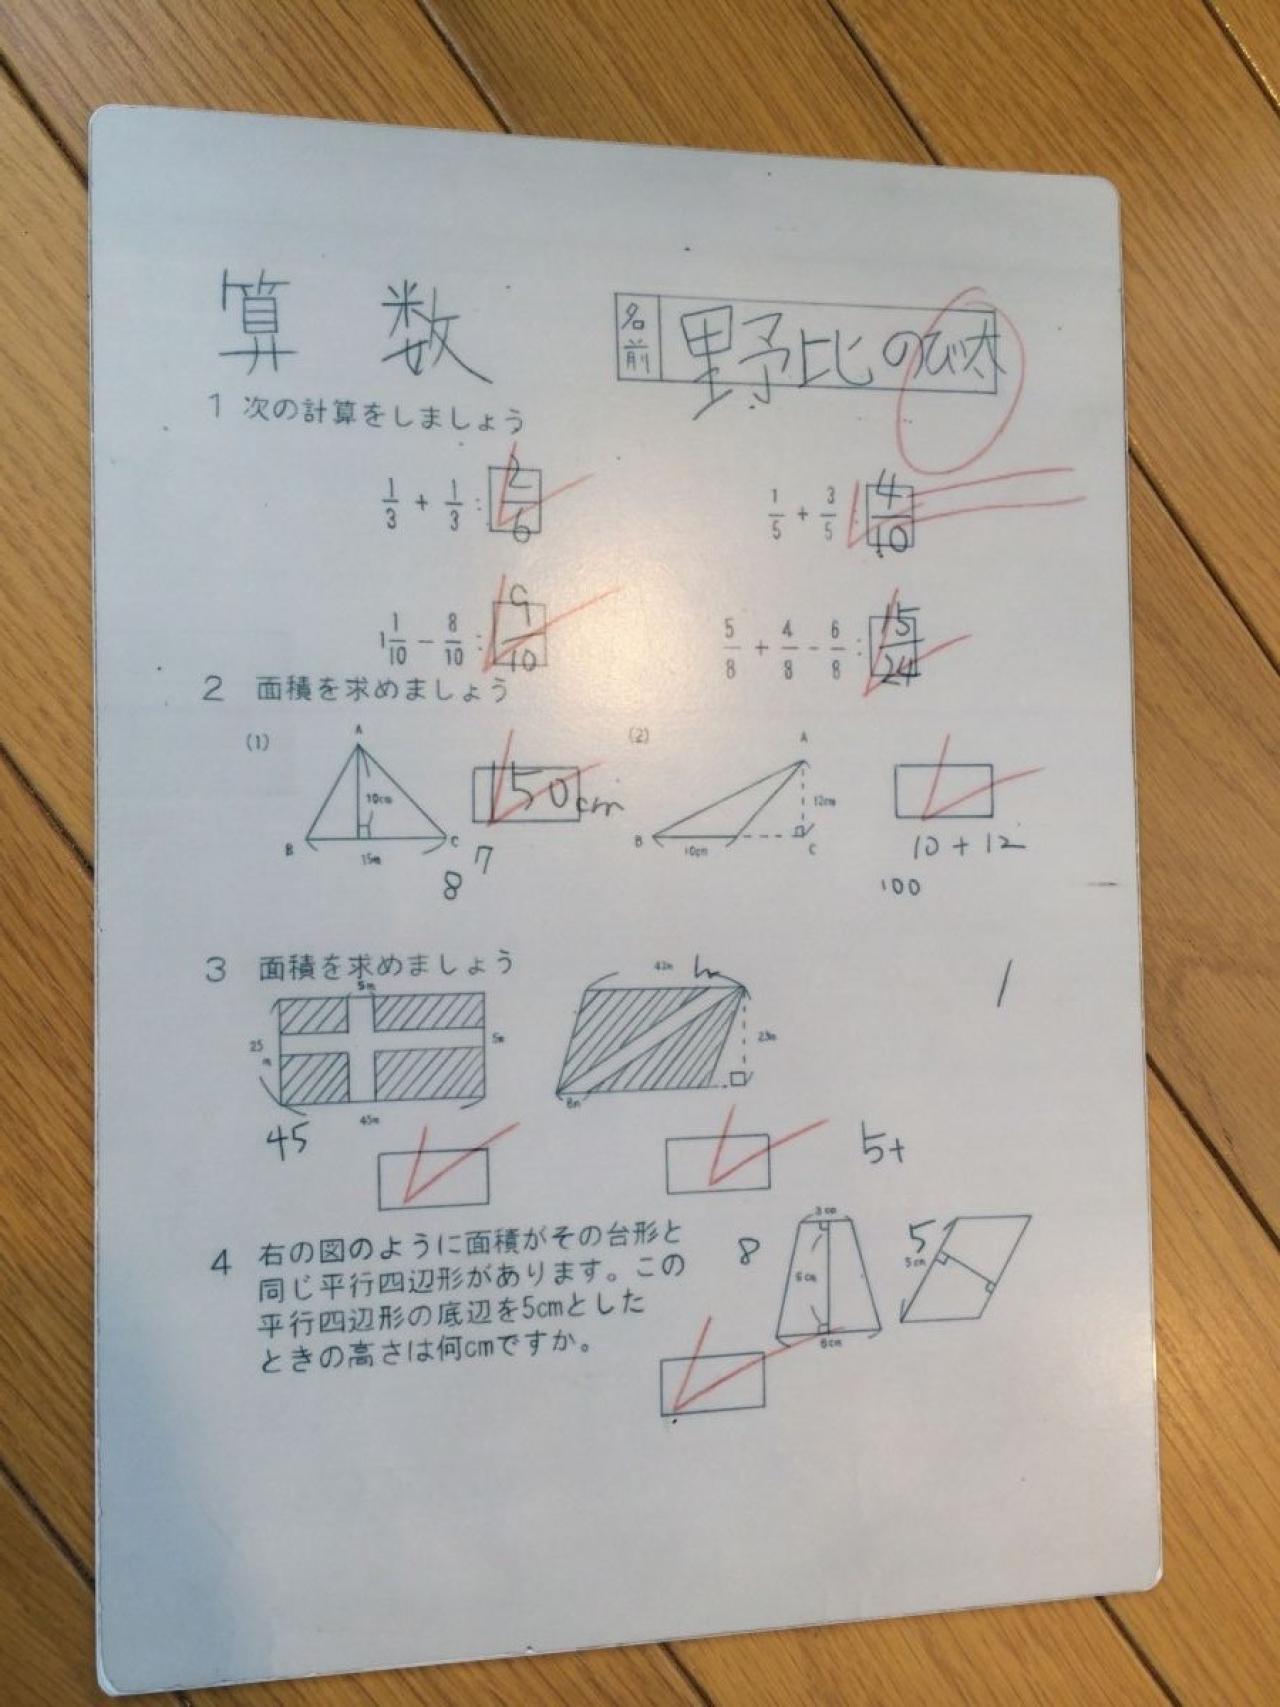 算 数
名前 野比のび太
1 次の計算をしましょう
1/3 + 1/3 : 2/6
1/5 + 3/5 : 4/10
1 1/10 − 8/10 : 9/10
5/8 + 4/8 − 6/8 : 15/24
2 面積を求めましょう
(1) A B C 10cm 15m 150cm
7
8
(2) A B C 12cm 10cm
10+12
100
3 面積を求めましょう
5m 25m 5m 45m
45
23m 8m
5+
4 右の図のように面積がその台形と
同じ平行四辺形があります。この
平行四辺形の底辺を5cmとした
ときの高さは何cmですか。
8
3cm 6cm 6cm
5
5cm